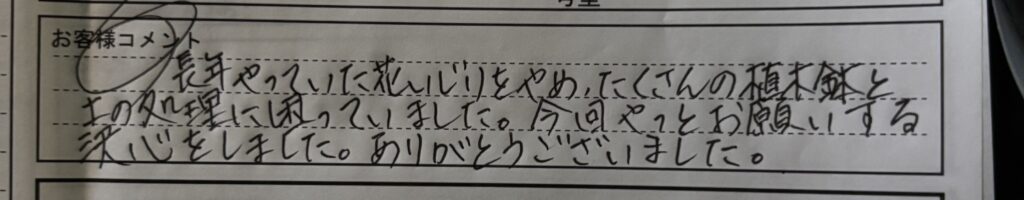 お客様コメント
長年やっていた花いじりをやめ、たくさんの植木鉢と
土の処理に困っていました。今回やっとお願いする
決心をしました。ありがとうございました。